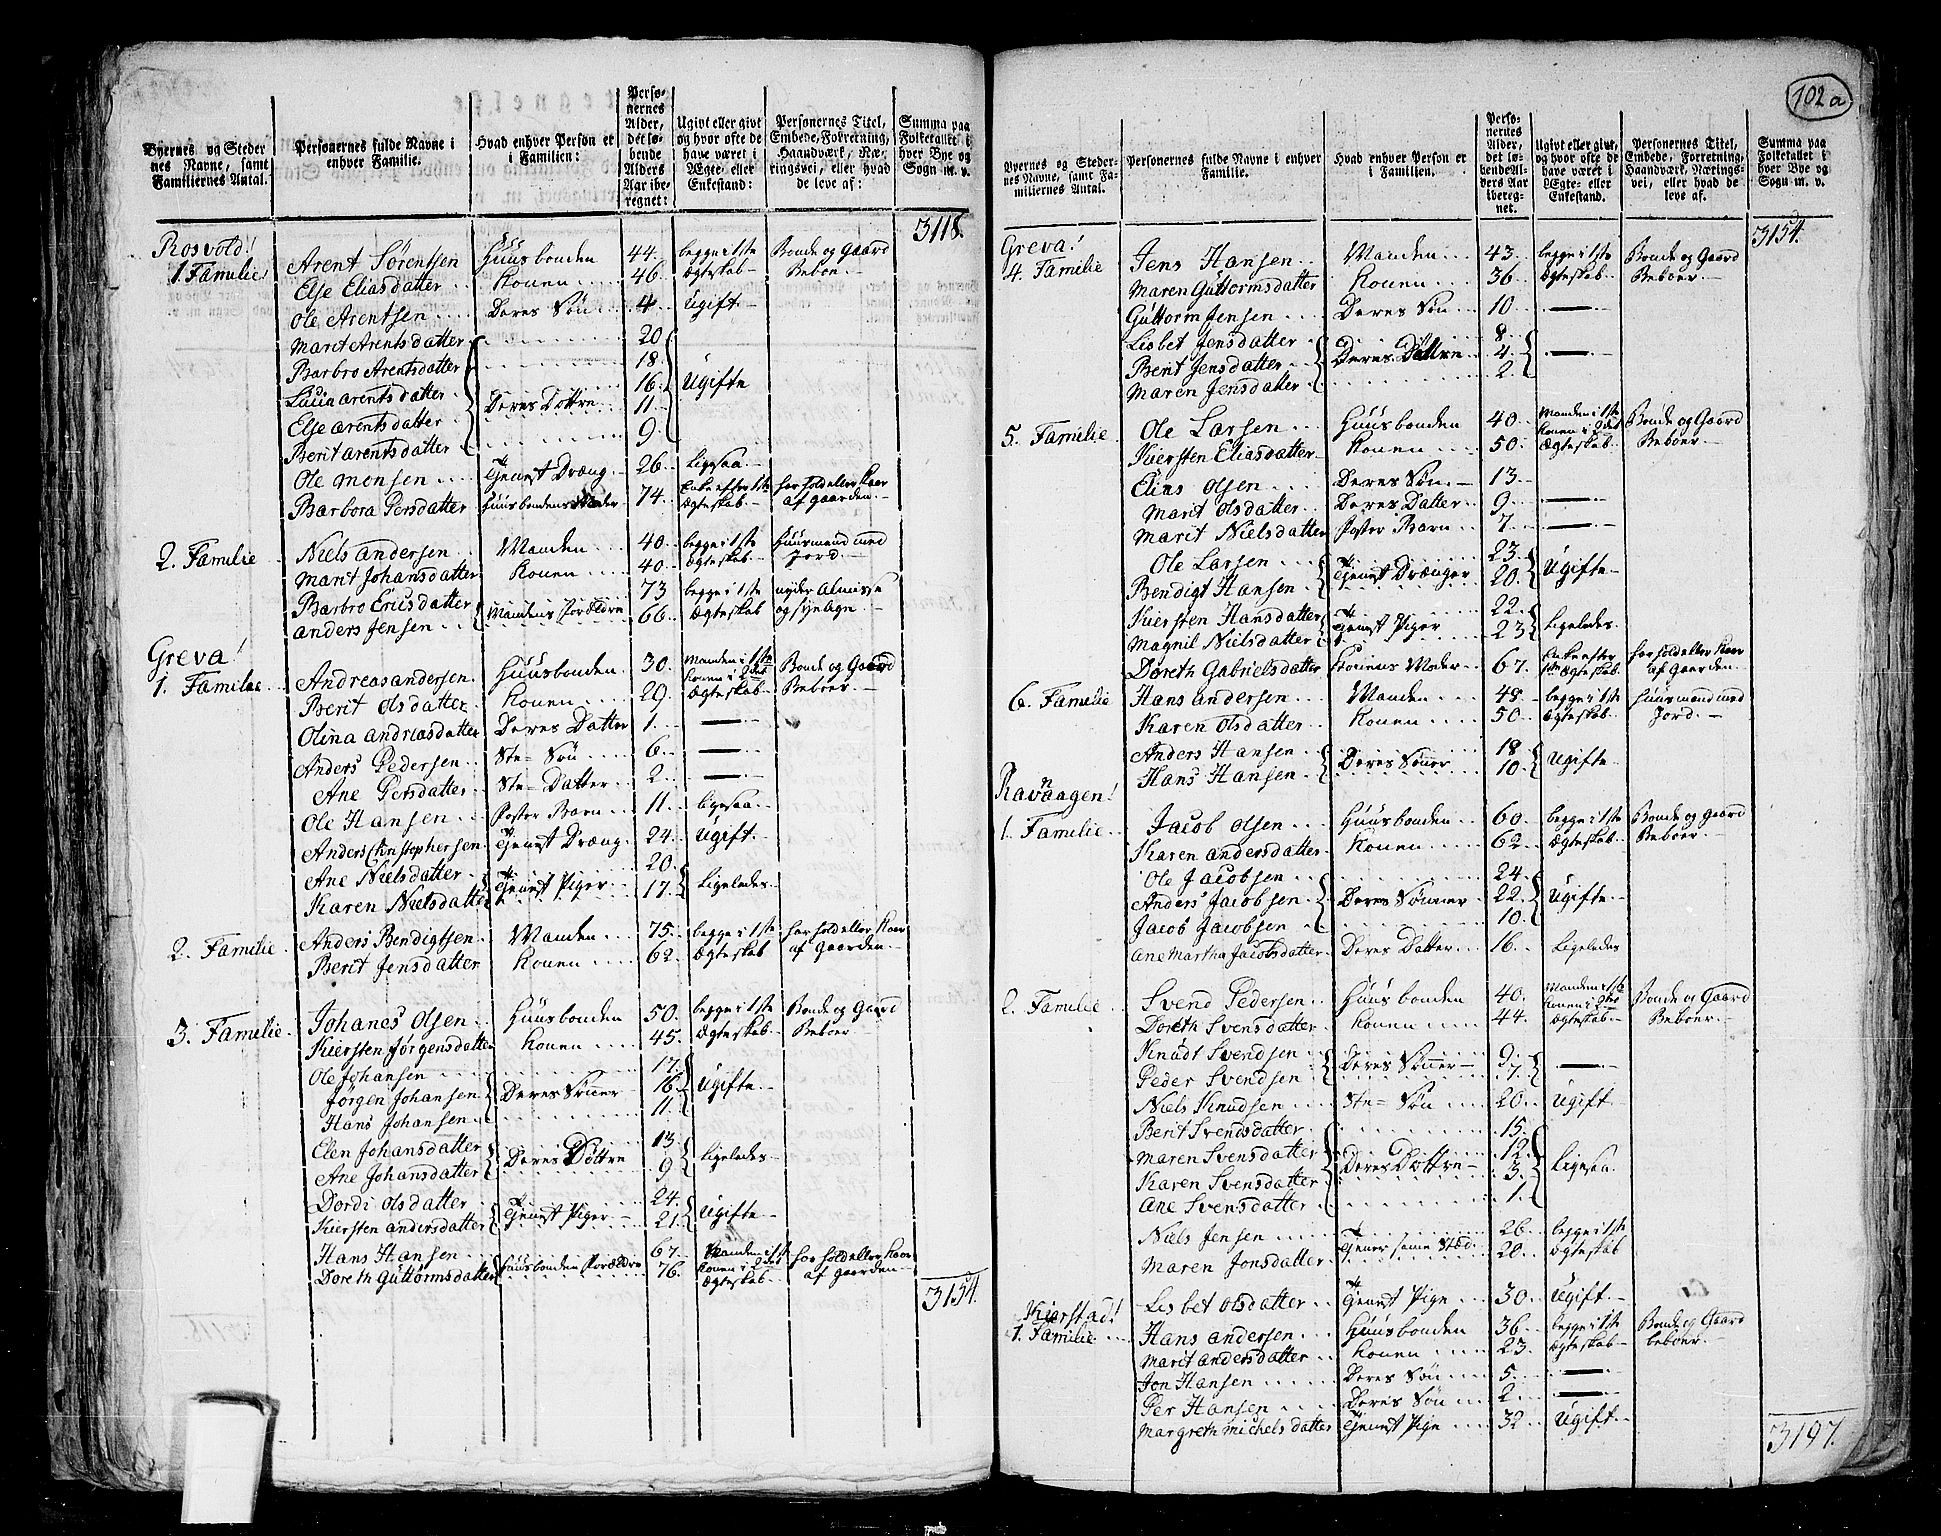 Byernes og Steder
nes Navne, samt
Familiernes Antal.
Personernes fulde Navne i
enhver Familie.
Hvad enhver Person er
i Familien:
Perso-
nernes
Alder,
det lø-
bende
Alders
Aar ibe-
regnet:
Ugivt eller givt
og hvor ofte de
have været i
Ægte- eller
Enkestand:
Personernes Titel,
Embede, Forretning,
Haandværk, Næ-
ringsvei, eller hvad
de leve af:
Summa paa
Folketallet i
hver Bye og
Sogn m. v.
3118.
Rosvold!
1 Familie Arent Sørentsen Huusbonden 44. begge i 1ste Bonde og Gaard
Else Eliasdatter Konen 46. Ægteskab Beboer
Ole Arentsen Deres Søn 4. Ugift
Marit Arentsdatter 20
Barbro Arentsdatter 18.
Arentsdatter 16. Ugifte
Else Arentsdatter Deres Dottre 11.
Berit Arentsdatter 9.
Ole Monsen Tjenest Dreng 26. Ligesaa
Barbora Persdatter Huusbondens Moder 74. Enke efter 1ste Ægteskab har hold eller Kaar af gaarden
2. Familie Niels Andersen Manden 40. begge i 1ste Huusmand med
Marit Johansdatter Konen 40. Ægteskab Jord.
Barbro Ericsdatter 73 begge i 1ste nyder Almisse
Anders Jensen Mandens Forældre 66. Ægteskab
Greva!
1. Familie Andreas Andersen Huusbonden 30. Manden i 1ste Konen i 2det Bonde og Gaard
Berit Olsdatter Konen 29. Ægteskab Beboer
Olina Andreasdatter Deres Datter 1. —
Anders Pedersen Ste= Søn 6. —
Ane Persdatter Ste= Datter 2. —
Ole Hansen Foster Barn 11. Ligesaa
Anders Christophersen Tjenest Dreng 24. Ugift
Ane Nielsdatter 20.
Karen Nielsdatter Tjenest Piger 17. Ligeledes
2. Familie Anders Bendigtsen Manden 75. begge i 1ste har hold eller Kaar
Berit Jensdatter Konen 62. Ægteskab af gaarden
3. Familie Johanes Olsen Huusbonden 50. begge i 1ste Bonde og Gaard
Kiersten Jørgensdatter Konen 45. Ægteskab Beboer
Ole Johansen 17.
Jørgen Johansen Deres Sønner 16. Ugifte
Hans Johansen 11.
Elen Johansdatter 13.
Ane Johansdatter Deres Döttre 9. Ligeledes
Dordi Olsdatter 24.
Kiersten Andersdatter Tjenest Piger 21. Ugifte
Hans Hansen 67. Manden i 1ste har hold eller Kaar
Doreth Guttormsdatter Huusbonden Forældre 76. Konen i 2det Ægteskab af gaarden
3154.
102a
Byernes og Steder-
nes Navne, samt Fa-
miliernes Antal.
Personernes fulde Navne i enhver
Familie.
Hvad enhver Person er
i Familien.
Perso-
nernes
Alder,
det lø-
bende Al-
ders Aar
ibereg-
net.
Ugivt eller givt,
og hvor ofte de
have været i
Ægte- eller
Enkestand.
Personernes Titel,
Embede, Forretning,
Haandværk, Nærings-
vei, eller hvad de
leve af.
Summa paa
Folketallet i
hver Bye og
Sogn m. v.
3154.
Greva!
4. Familie Jens Hansen Manden 43. begge i 1ste Bonde og Gaard
Maren Guttormsdatter Konen 36. Ægteskab Beboer
Guttorm Jensen Deres Søn 10. —
Lisbet Jensdatter 8.
Berit Jensdatter Deres Döttre 4. —
Maren Jensdatter 2.
5. Familie Ole Larsen Huusbonden 40. Manden i 1ste Konen i 2det Bonde og Gaard
Kiersten Eliasdatter Konen 50. Ægteskab Beboer
Elias Olsen Deres Søn 13
Marit Olsdatter Deres Datter 9. —
Marit Nielsdatter Foster Barn 7. —
Ole Larsen 23.
Bendigt Hansen Tjenest Drenger 20. Ugifte
Kiersten Hansdatter 22.
Magnil Nielsdatter Tjenest Piger 23 Ligeledes
Doreth Gabrielsdatter Konens Moder 67. Enke efter 1ste Ægteskab har hold eller Kaar af gaarden
6. Familie Hans Andersen Manden 48. begge i 1ste Huusmand med
Karen Olsdatter Konen 50. Ægteskab Jord.
Anders Hansen 18
Hans Hansen Deres Sønner 10. Ugifte
Ravnaagen!
1. Familie Jacob Olsen Huusbonden 60. begge i 1ste Bonde og Gaard
Karen Andersdatter Konen 62. Ægteskab Beboer
Ole Jacobsen 24.
Anders Jacobsen Deres Sønner 22. Ugifte
Jacob Jacobsen 10.
Ane Martha Jacobsdatter Deres Datter 16. Ligeledes
2. Familie Svend Pedersen Huusbonden 40. Manden i 1ste Konen i 2det Bonde og Gaard
Doreth Svensdatter Konen 44. Ægteskab Beboer
Knudt Svendsen Deres Sønner 9. —
Peder Svendsen 7.
Niels Knudsen Ste= Søn 20. Ugift
Berit Svendsdatter 15.
Maren Svensdatter 12.
Karen Svensdatter Deres Dottre 3. Ligesaa
Ane Svensdatter 1.
Niels Jensen 26. begge i 1ste
Maren Jonsdatter Tjener same Sted 20. Ægteskab
Lisbet Olsdatter Tjenest Pige 30. Ugift
Kierstad!
1. Familie Hans Andersen Huusbonden 36. begge i 1ste Bonde og Gaard
Marit Andersdatter Konen 23. Ægteskab beboer
Jon Hansen Deres Søn 5. —
Per Hansen Deres Søn 2. —
Margreth Michelsdatter Tjenest Pige 32. Ugift
3197.